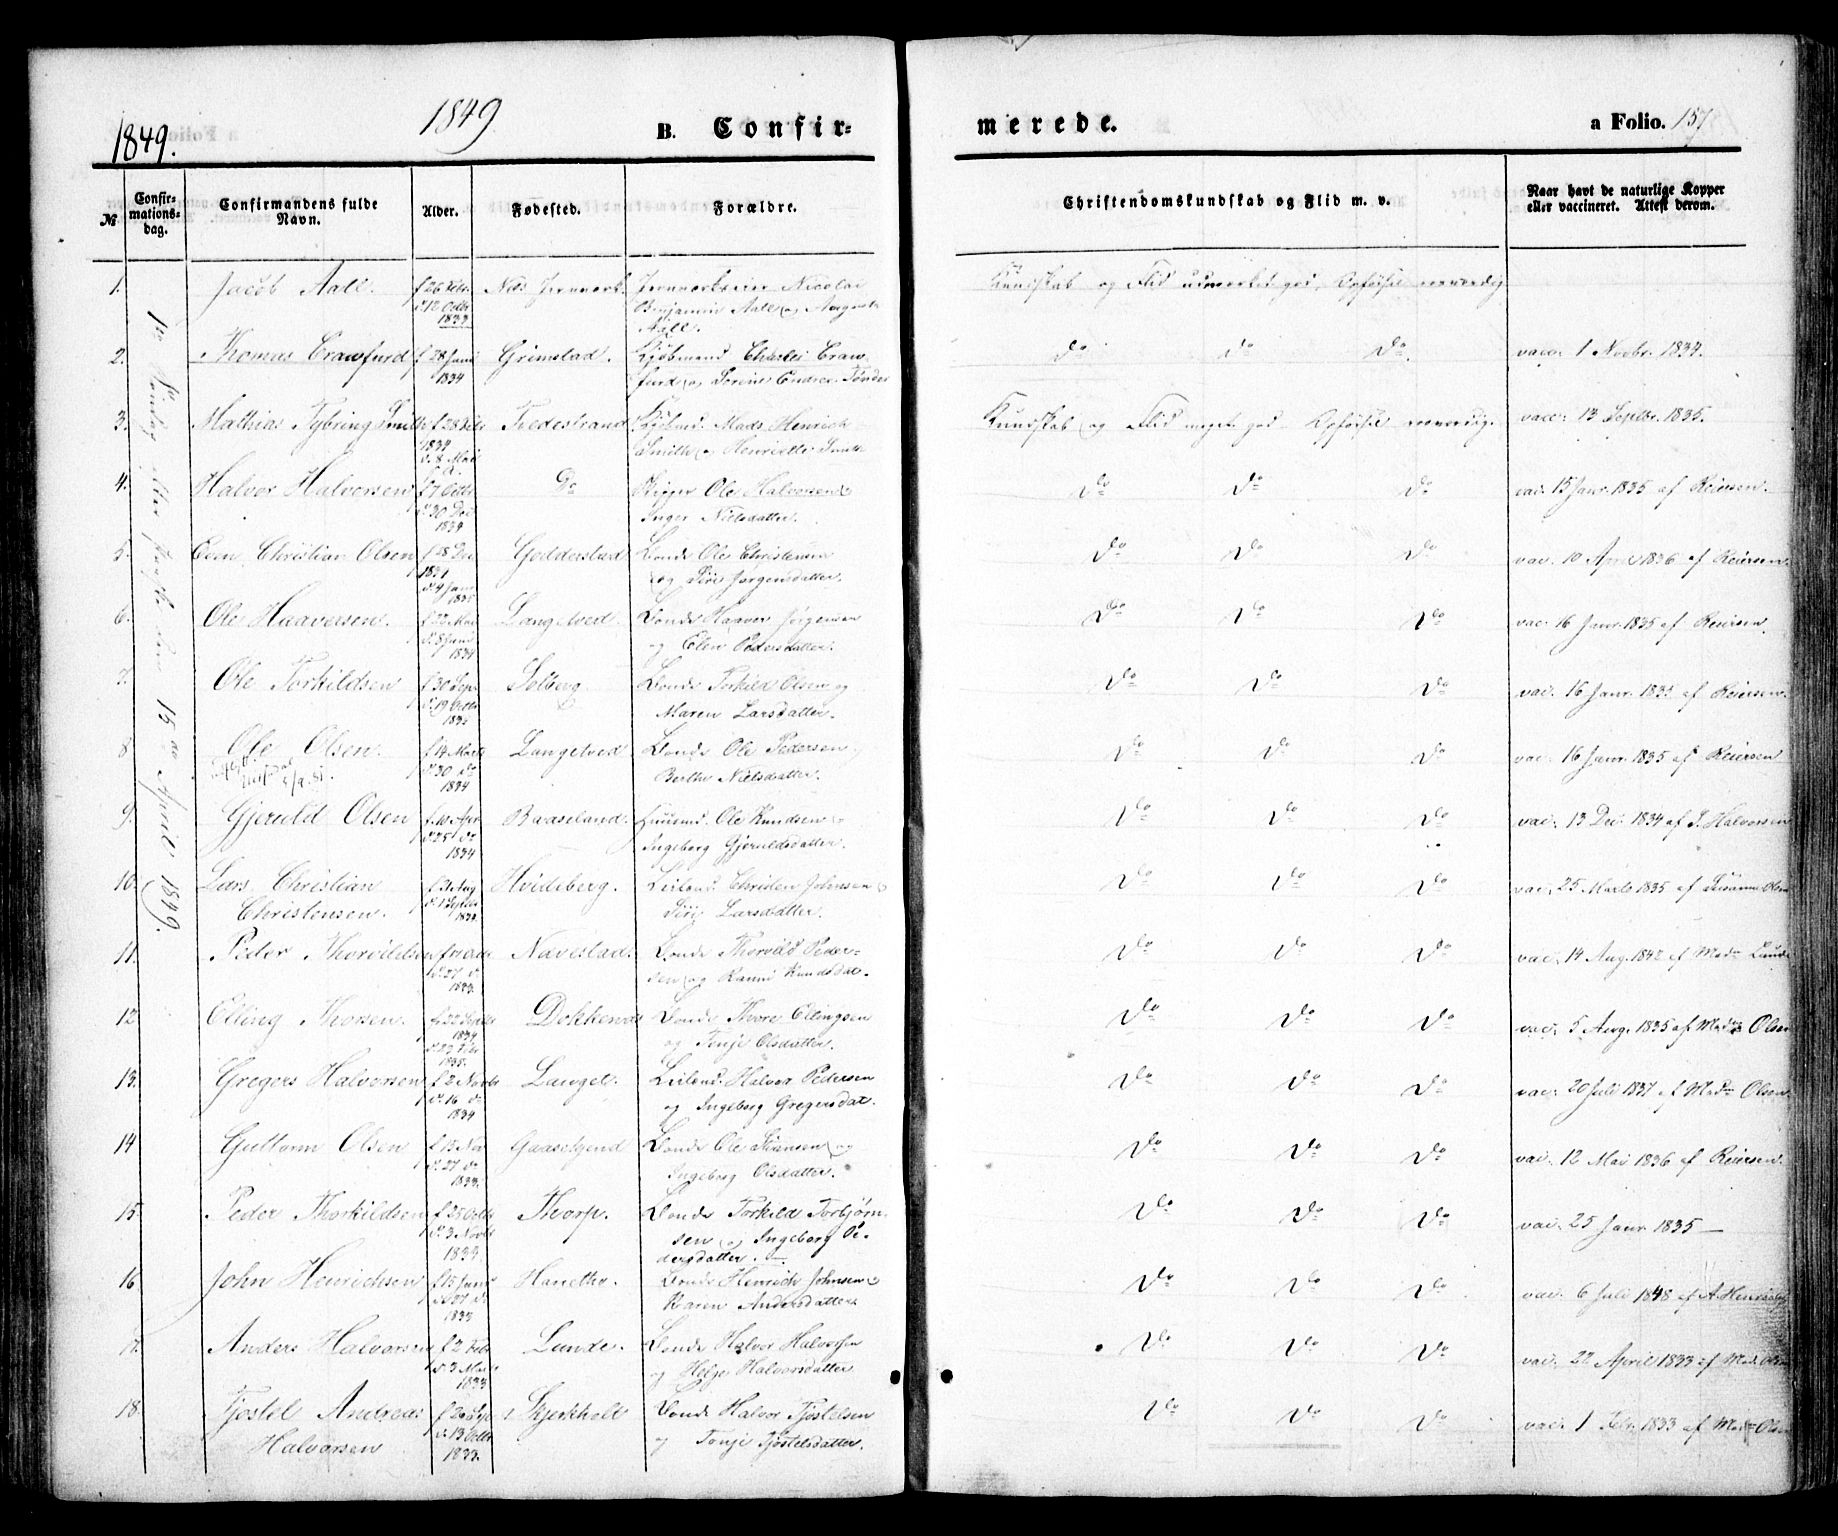 1849.
1849
B. Confir-
merede.
a Folio. 157
№
Confir-
mations-
dag.
Confirmandens fulde
Navn.
Alder.
Fødested.
Forældre.
Christendomskundskab og Flid m. v.
Naar havt de naturlige Kopper
eller vaccineret. Attest derom.
1ste Søndag efter Paaske den 15de April 1849.
1. Jacob Aall. f 26 Febr. Næs Jernverk. Jernverkseier Nicolai Kundskab og Flid udmærket god, Opførsel roesværdig
d. 12 Octbr Benjamin Aall og Augusta
1833 Aall.
2. Thomas Crawfurd f 28 Juni Grimstad. Kjøbmand Charles Craw- Do Do Do. vacc. 1 Novbr. 1834.
1834 furd og Sørine Endree Tønder
3. Mathias Tybring Smith f 28 Febr Tvedestrand Kjøbmd. Mads Henrich Kundskab og Flid meget god Opførsel roesværdig. vacc. 13 Septbr. 1835.
1834 Smith og Henriette Smith
d. 8 Mai
4. Halvor Halvorsen f 7 Octbr Do Skipper Ole Halvorsen & Do Do Do vac. 15 Janr. 1835 af Reiersen.
d. 30 Dec Inger Nielsdatter.
1834
5. Even Christian Olsen f 28 Dec Godderstad Bonde Ole Christensen Do Do Do vac. 10 April 1836 af Reiersen
1834 og Siri Jørgensdatter.
d. 4 Janr
1835
6. Ole Haaversen. f 22 Mai Langelved. Bonde Haaver Jørgensen Do Do Do vac. 16 Janr. 1835 af Reiersen.
d. 8 Juni og Elen Pedersdatter.
1834
7. Ole Torkildsen f 30 Sept Solberg. Bonde Torkild Olsen og Do Do Do vac. 16 Janr. 1835 af Reiersen.
d. 19 Octbr Maren Larsdatter.
8 Ole Olsen. f 14 Marts Langelved Bonde Ole Pedersen Do Do Do vac. 16 Janr. 1835 af Reiersen
d. 30 do Berthe Nielsdatter.
1834
9. Gjeruld Olsen f. 10 Apr Baaseland. Huusmd. Ole Knudsen & Do Do Do vac. 13 Dec. 1834 af J. Halvorsen
d. 25 do Ingeborg Gjeruldsdatter.
1834
10. Lars Christian Hvideberg. Leilænd. Christen Johnsen & Do Do Do vac. 25 Marts 1835 af Susanna Olsen
Christensen. Siri Larsdatter.
11. Peder Thorvildsen Navestad. Bonde Thorvild Peder- Do Do Do vac. 14 Aug. 1842 af Mad. Lunde
d. 27 do sen og Karen Knudsdat.
12 Elling Thorsen. Dokkenæs Bonde Thore Ellingsen Do Do Do vac. 5 Aug. 1835 af Mad. Olsen
1834 og Tonje Olsdatter.
1835.
13. Gregers Halvorsen f 2 Novbr Langel. Leilænd. Halvor Pedersen Do Do Do vac. 20 Juli 1837 af Mad. Olsen
d. 16 do og Ingeborg Gregersdat.
1834
14 Guttorm Olsen f 15 Nov Gaaseljend Bonde Ole Sørensen og Do Do Do vac. 12 Mai 1836 af Reiersen.
d. 27 do Ingeborg Olsdatter.
1833.
15. Peder Thorkildsen f. 25 Octbr Thorp. Bonde Torkild Torbjørn- Do Do Do vac. 25 Janr. 1835 —
d. 3 Novbr sen og Ingeborg Pe-
1833. dersdatter.
16 John Henrichsen f 15 Juni Hanetho. Bonde Henrich Johnsen & Do Do Do vac. 6 Juli 1848 af A. Henriksen
d. 27 do Karen Andersdatter
1833
17. Anders Halvorsen f 2 Febr Lunde. Bonde Halvor Halvorsen Do Do Do vac. 22 April 1833 af Mad. Olsen
d. 3 Marts og Helje Halvorsdatter
1833
18. Tjøstel Andreas Skjerkholt Bonde Halvor Tjøstelsen Do Do Do vac. 1 Febr. 1833 af Mad. Olsen
Halvorsen d. 13 Octbr og Tonje Tjøstelsdatter.
1833.